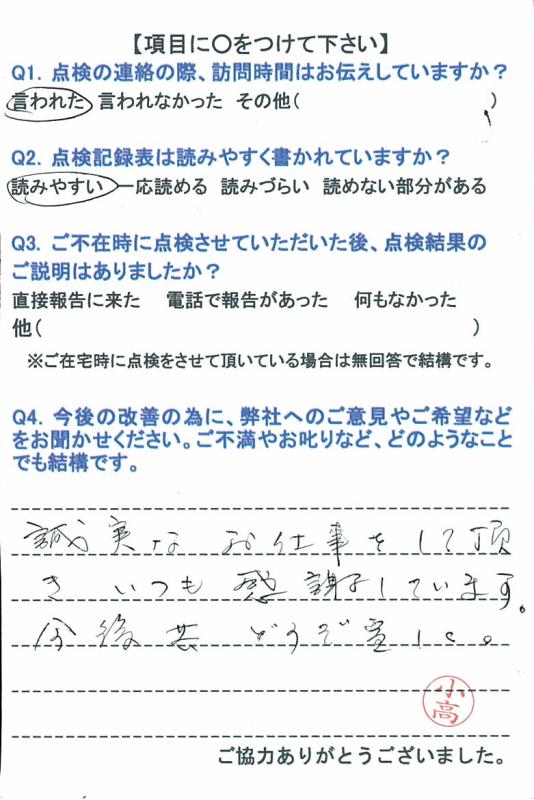 【項目に〇をつけて下さい】
Q1. 点検の連絡の際、訪問時間はお伝えしていますか？
言われた 言われなかった その他( )
Q2. 点検記録表は読みやすく書かれていますか？
読みやすい 一応読める 読みづらい 読めない部分がある
Q3. ご不在時に点検させていただいた後、点検結果の
ご説明はありましたか？
直接報告に来た 電話で報告があった 何もなかった
他( )
※ご在宅時に点検をさせて頂いている場合は無回答で結構です。
Q4. 今後の改善の為に、弊社へのご意見やご希望など
をお聞かせください。ご不満やお叱りなど、どのようなこと
でも結構です。
誠実な お仕事をして頂
き いつも 感謝しています。
今後共 どうぞ宜しく。
小高
ご協力ありがとうございました。